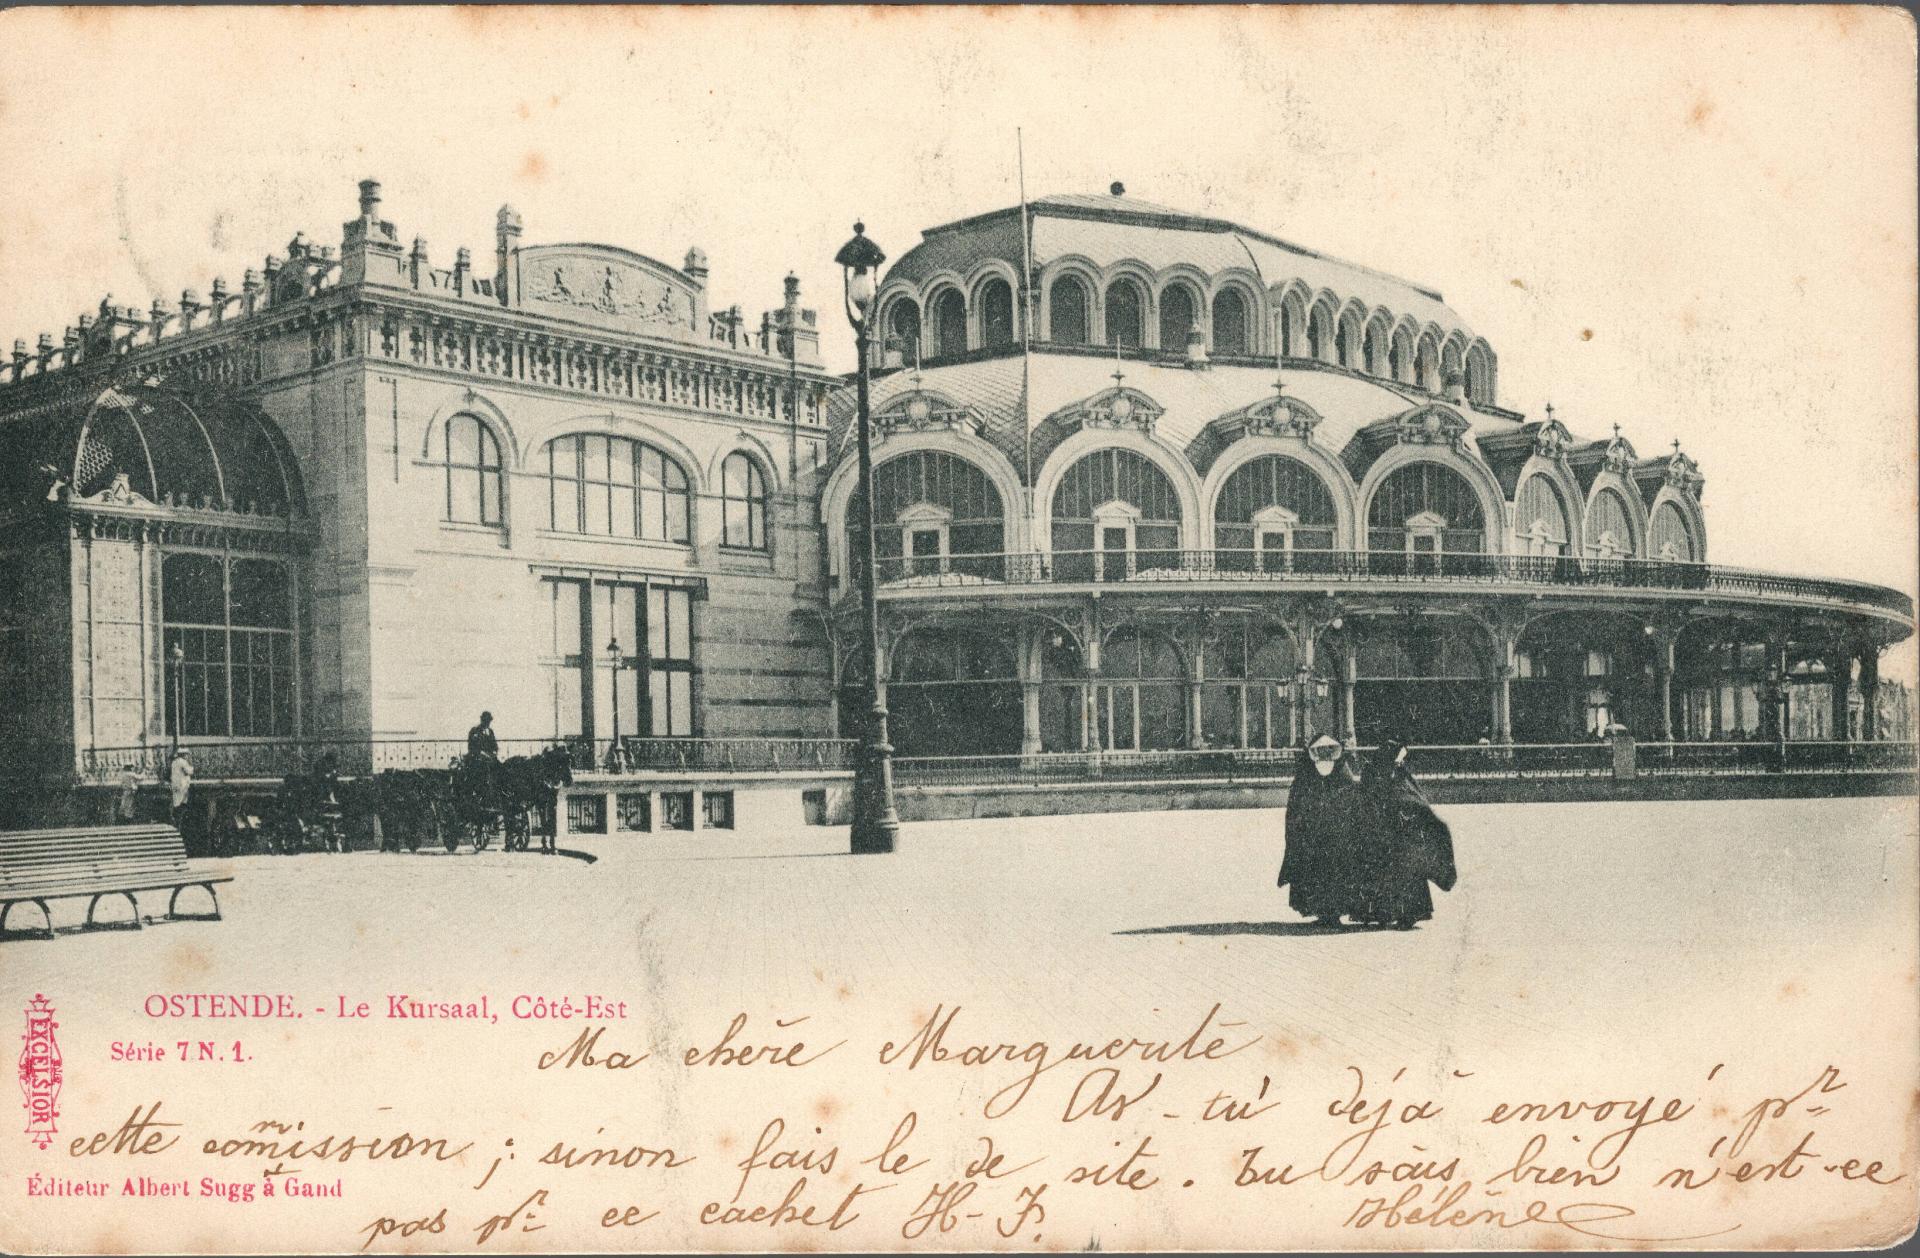 OSTENDE. - Le Kursaal, Côté-Est
Série 7 N. 1.
EXCELSIOR
Ma chère Marguerite
As-tu déjà envoyé pr
cette commission ; sinon fais le de site. Tu sais bien n'est-ce
Éditeur Albert Sugg à Gand
pas pr ce cachet H-F.
Hélène